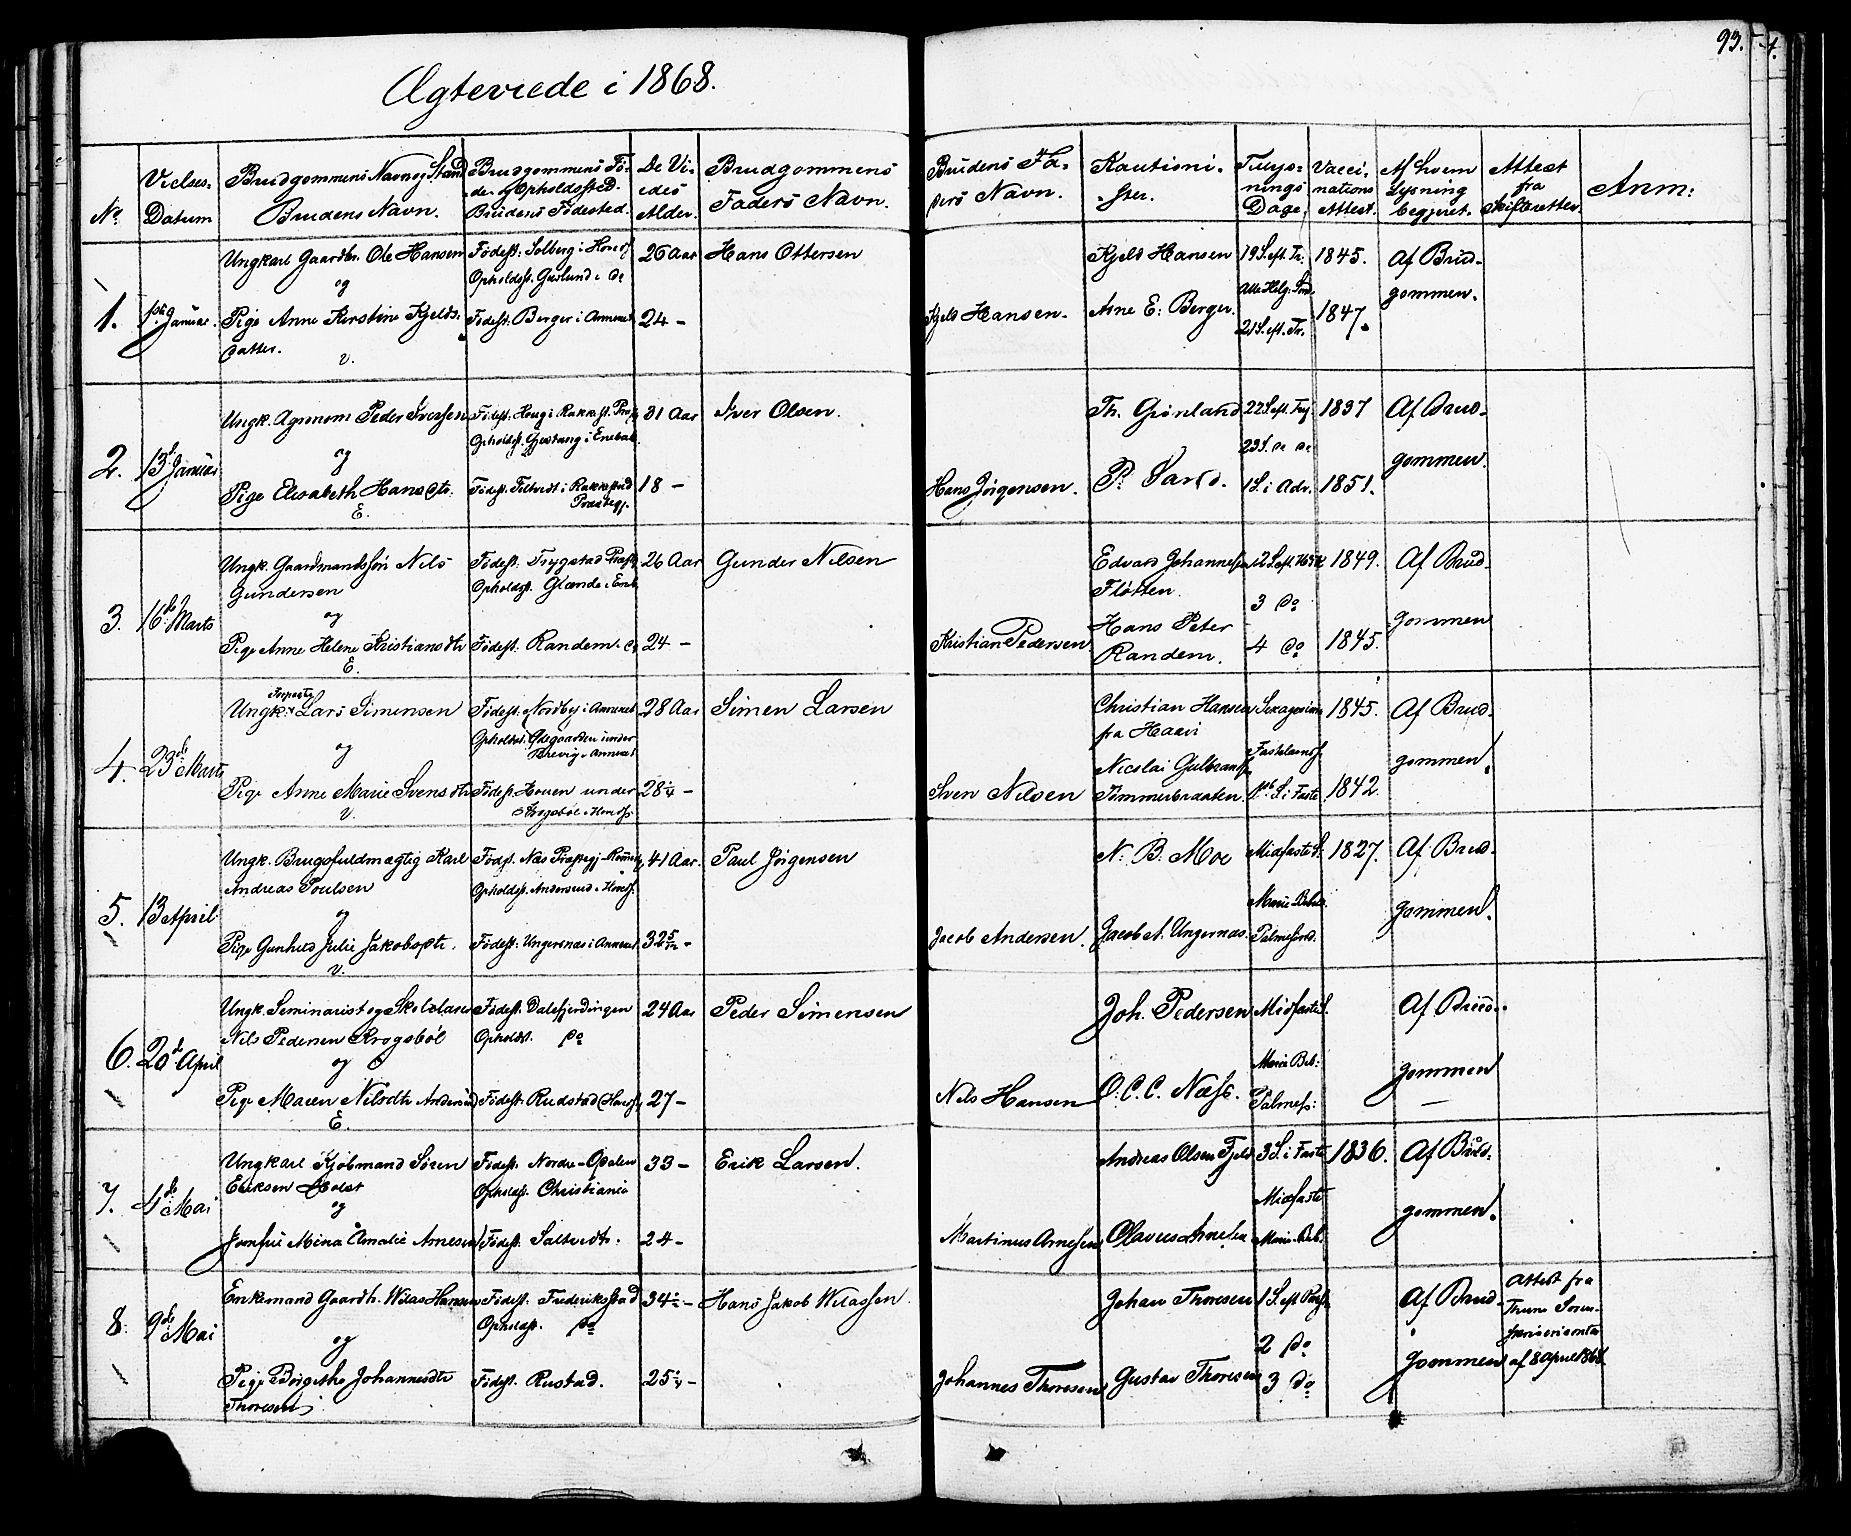 93.
Ægteviede i 1868.
No
Vielses-
Datum
Brudgommens Navn og Stand
Brudens Navn.
Brudgommens Fø-
de- og Opholdssted.
Brudens Fødested.
De Vi-
edes
Alder.
Brudgommens
Faders Navn.
Brudens Fa-
ders Navn.
Kautioni-
ster.
Tillys-
nings
Dage.
Vacci-
nations
Attest.
Af hvem
Lysning
begjæret.
Attest
fra
Skifteretten.
Anm:
1.
1ste Januar.
Ungkarl Gaardbr. Ole Hansen
og
Pige Anne Kirstine Kjelds-
datter.
v.
Fødest: Solberg i Hovds.
Opholdsst. Guslund i do
Fødest. Berger i Annexet
26 Aar
24 -
Hans Ottersen
Kjeld Hansen.
Kjeld Hansen
Arne E. Berger.
19 S. eft. Tr.
Alle Helg. Snd.
21 S. eft. Tr.
1845.
1847.
Af Brud-
gommen.
2.
13de Januar
Ungk. Agronom Peder Iversen
og
Pige Elisabeth Hansdtr.
E.
Fødest. Houg i Rakkest. Præstg.
Opholdsst. Gjestang i Enebak.
Fødest. Tiltvedt i Rakkestad
Præstegj.
31 Aar
18 -
Iver Olsen.
Hans Jørgensen.
Th. Grønland
P.
22 S. eft. Trf
23 S. do do
1 S. i Adv.
1837
1851.
Af Brud-
gommen.
3.
16de Marts
Ungk. Gaardmandssøn Nils
Gundersen
og
Pige Anne Helene Kristiansdtr
E.
Fødest. Trygstad Præstg
Opholdsst. Glænde i Eneb.
Fødest. Randem. do
26 Aar
24 -
Gunder Nilsen
Kristian Pedersen
Edvard Johannesen
Fløtten.
Hans Peter
Randem.
2 S. eft.
3 do
4 do
1849.
1845.
Af Brud-
gommen
4.
23de Marts
Ungk. Lars Simensen
og
Pige Anne Marie Svensdtr
v.
Fødest. Nordby i Annexet
Opholdsst. Ødegaarden under
Brevig i Annexet
Fødest. Houen under
Krogsbøl i Hovds.
28 Aar
28¼ -
Simen Larsen
Sven Nilsen
Christian Hansen
fra Haavi
Nicolai Gulbrands.
Tømmerbraaten.
Sexagesima
Fastelavns.
1ste S. i Faste
1845.
1842.
Af Brud-
gommen.
5.
13 April
Ungk. Brugsfuldmægtig Karl
Andreas Poulsen
og
Pige Gunhild Julie Jakobsdtr.
v.
Fødst. Næs Præstegj.
Opholdsst. Andersrud i Hovds.
Fødest: Ungersnæs i Annexet
41 Aar.
32 5/12 -
Paul Jørgensen
Jacob Andersen.
N. B. Moe
Jacob A. Ungernæs.
Midfaste S.
Mariæ Bebud.
Palmesønd.
1827.
Af Brud-
gommen.
6.
20de April
Ungk. Seminarist og Skolelærer
Nils Pedersen Krogsbøl
og
Pige Maren Nilsdtr Andersrud
E.
Fødest. Dalefjerdingen
Opholdst. do
Fødest. Rudstad (Hovds.)
24 Aar
27 -
Peder Simensen
Nils Hansen
Joh. Pedersen
O. C. C. Næss.
Midfaste S.
Mariæ Beb:
Palmes:
Af Brud-
gommen
7.
4de Mai
Ungkarl Kjøbmand Søren
Eriksen Holst
og
Jomfru Mina Amalie Arnesen
Fødest. Nordre-Opalen
Opholdst. Christiania
Fødest. Saltvedt.
33 -
24 -
Erik Larsen.
Martinus Arnesen
Andreas Olsen Fjeld
Olavus Arnesen
3 S. i Faste
Midfaste
Mariæ Beb.
1836.
Af Brud-
gommen.
8.
9de Mai
Enkemand Gaardbr. Willas Hansen
og
Pige Birgithe Johannesdtr
Thoresen
Fødest. Frederiksstad
Opholdst. do
Fødest. Rustad.
34½ -
25¼ -
Hans Jakob Willassen.
Johannes Thoresen
Johan Thoresen
Gustav Thoresen
1 S. eft Paaske
2 do
3 do
Af Brud-
gommen
Attest fra
Thune Soren-
skriverkontor
af 8 April 1868